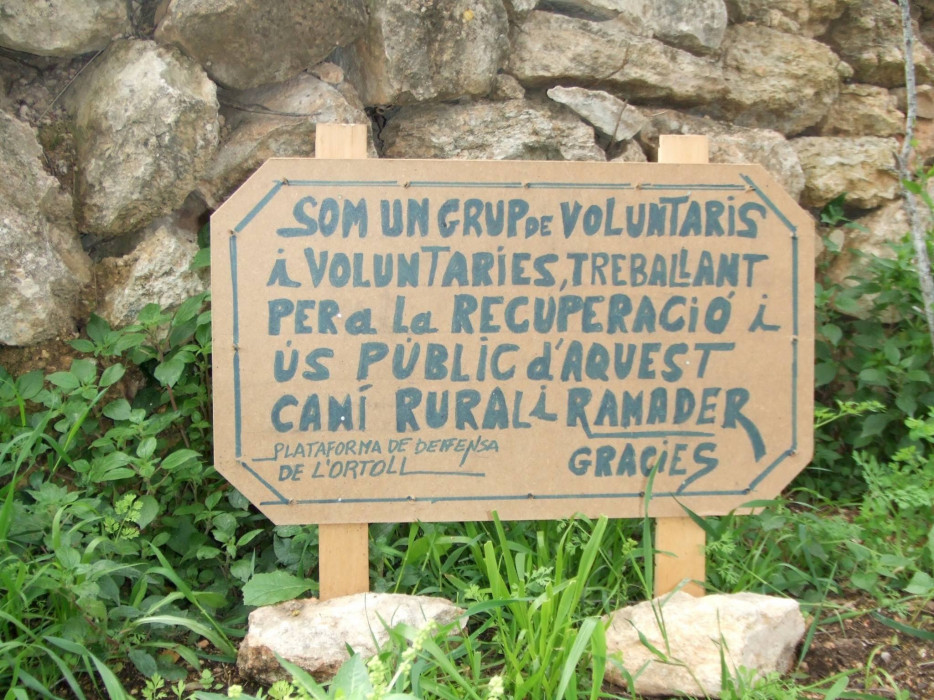 SOM UN GRUP DE VOLUNTARIS
i VOLUNTARIES, TREBALLANT
PER a La RECUPERACIÓ i
ÚS PÚBLIC d'AQUEST
CAMÍ RURAL i RAMADER
PLATAFORMA DE DEFFENSA
DE L'ORTOLL
GRACIES